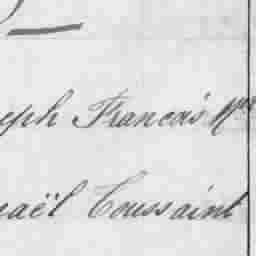 eph Francois
aël Toussaint